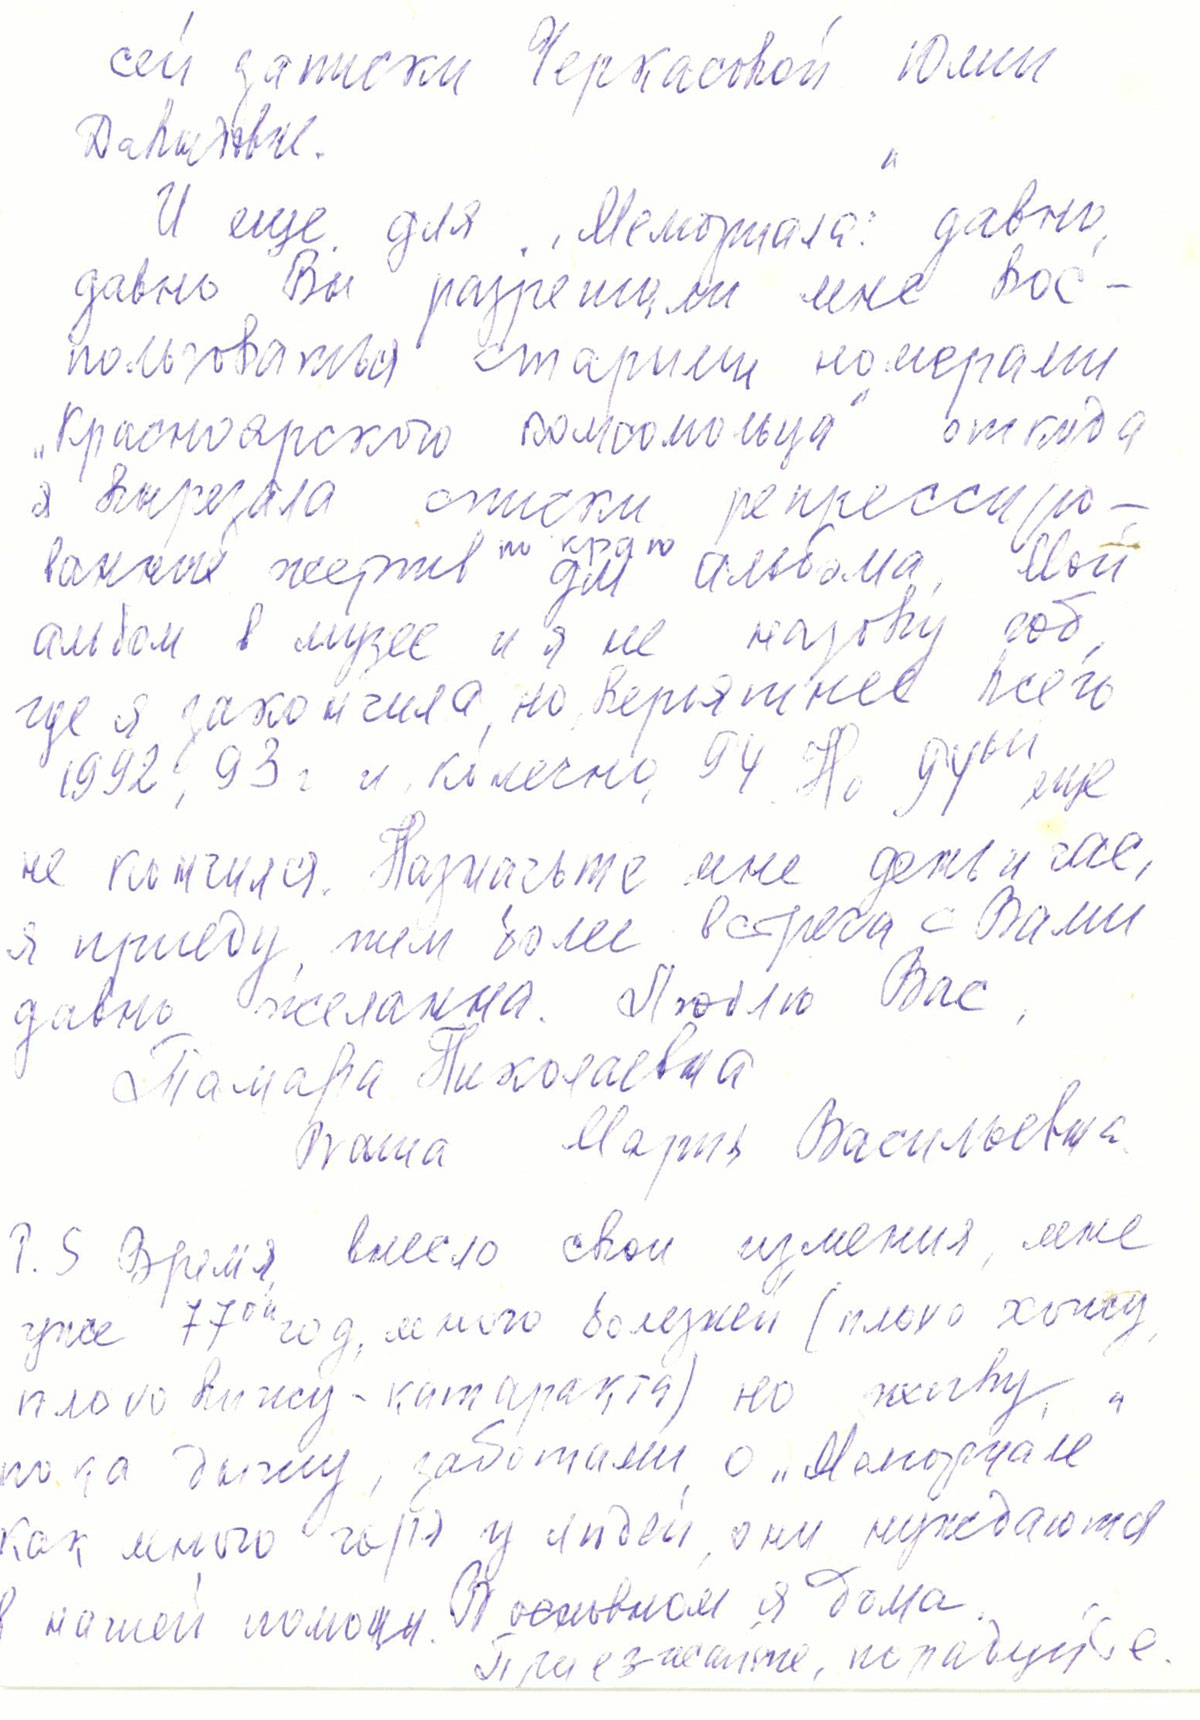 сей записки Черкасовой Юлии
Давыдовне.
И еще для „Мемориала": давно,
давно Вы разрешили мне вос-
пользоваться старыми номерами
„Красноярского комсомольца" откуда
я вырезала списки репрессиро-
ванных жертв по краю для альбома. Мой
альбом в музее и я не назову год,
где я закончила, но, верятнее всего
1992, 93 г и, конечно, 94. Но 94ый еще
не кончился. Назначьте мне день и час,
я приеду, тем более встреча с Вами
давно желанна. Люблю Вас,
Тамара Николаевна
Ваша Мария Васильевна.
P.S Время внесло свои измения, мне
уже 77ой год, много болезней (плохо хожу,
плохо вижу - катаракта) но живу,
пока дышу, заботами о „Мемориале"
Как много горя у людей, они нуждаются
в нашей помощи. В основном я дома.
Приезжайте, порадуйте.